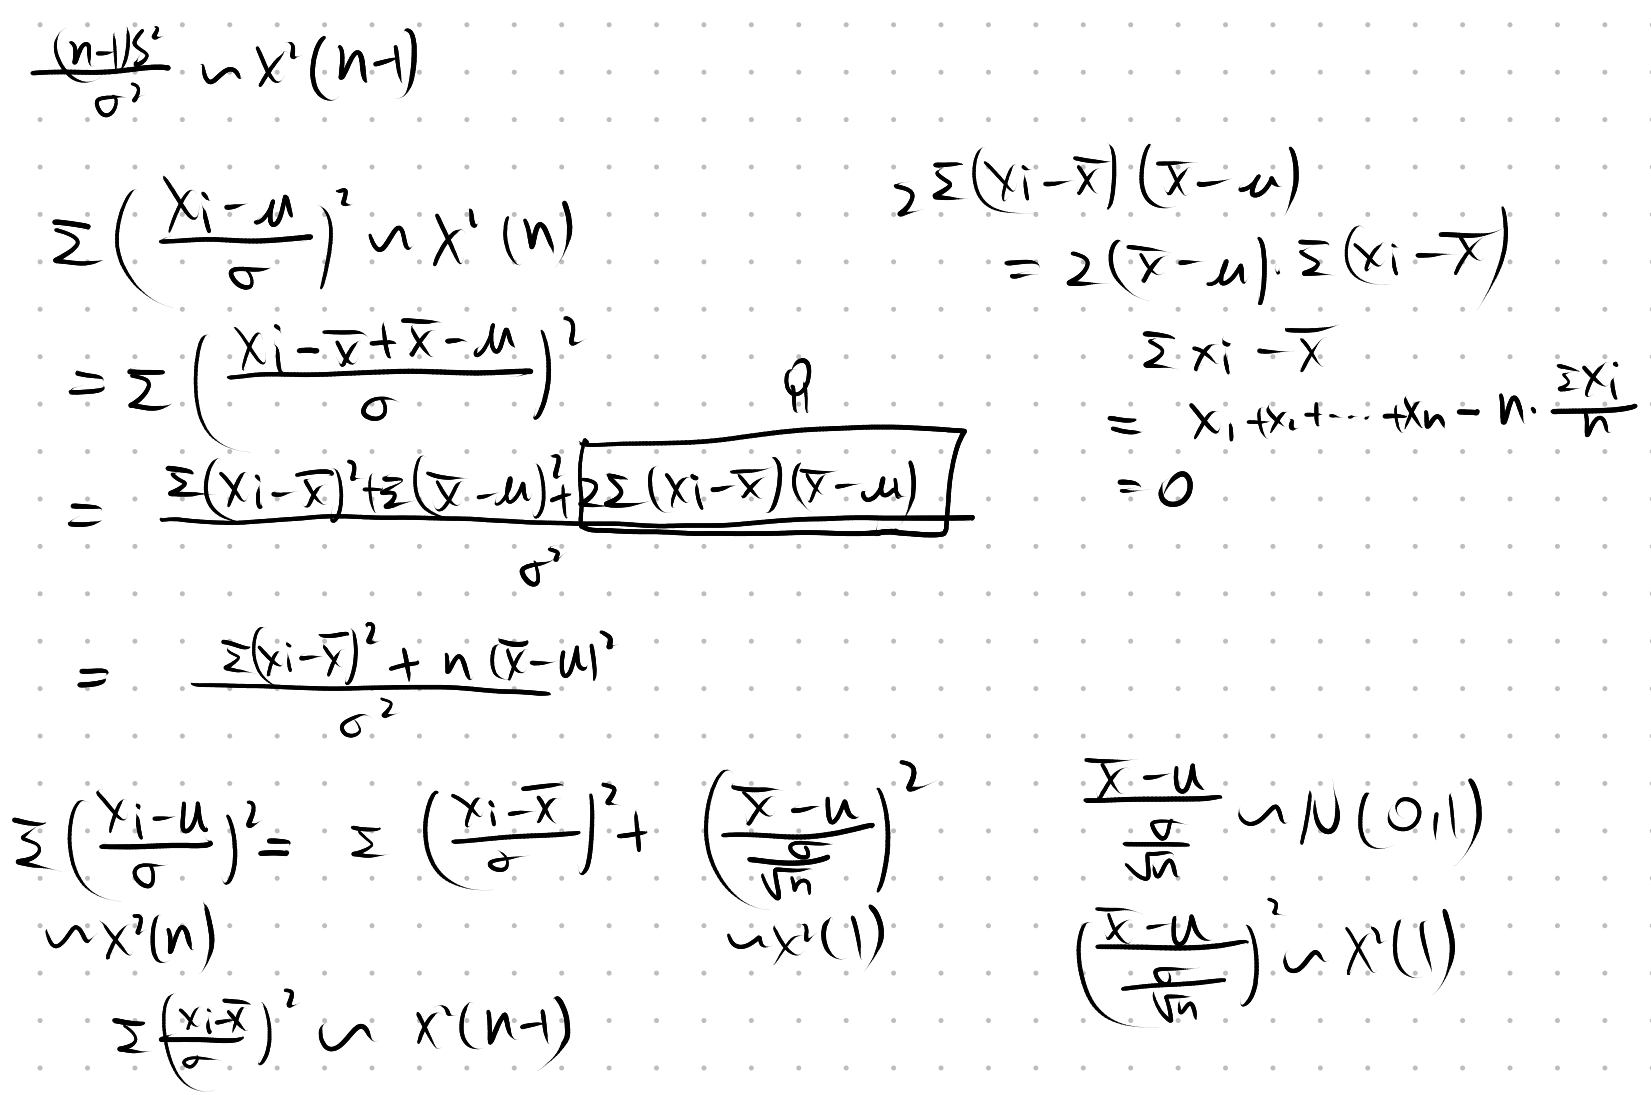 (n-1)S² / σ² ~ X²(n-1)
Σ((Xi-μ)/σ)² ~ X²(n)
= Σ((Xi-x̄+x̄-μ)/σ)²
= (Σ(Xi-x̄)²+Σ(x̄-μ)²+2Σ(Xi-x̄)(x̄-μ)) / σ²
= (Σ(xi-x̄)² + n(x̄-μ)²) / σ²
2Σ(Xi-x̄)(x̄-μ)
= 2(x̄-μ)·Σ(xi-x̄)
Σxi-x̄
= X₁+X₂+···+Xn - n·ΣXi/n
= 0
Σ((Xi-μ)/σ)² = Σ((Xi-x̄)/σ)² + ((x̄-μ)/(σ/√n))²
~X²(n) ~X²(1)
Σ((xi-x̄)/σ)² ~ X²(n-1)
(x̄-μ)/(σ/√n) ~ N(0,1)
((x̄-μ)/(σ/√n))² ~ X²(1)